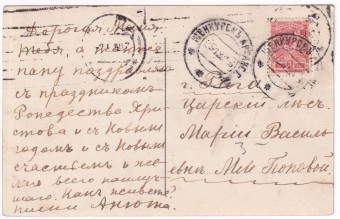 Дорогая Маня
тебя, а также
папу поздравляю
съ праздникомъ
Рождества Хри-
стова и съ Новымъ
годомъ и съ Новымъ
счастьемъ и же-
лаю всего наилуч-
шаго. Какъ живете?
пиши Анюта.
ШЕНКУРСКЪ АРХАНГ.
г. Рига
Царскій лѣсъ.
Маріи Василь
евнѣ Поповой.